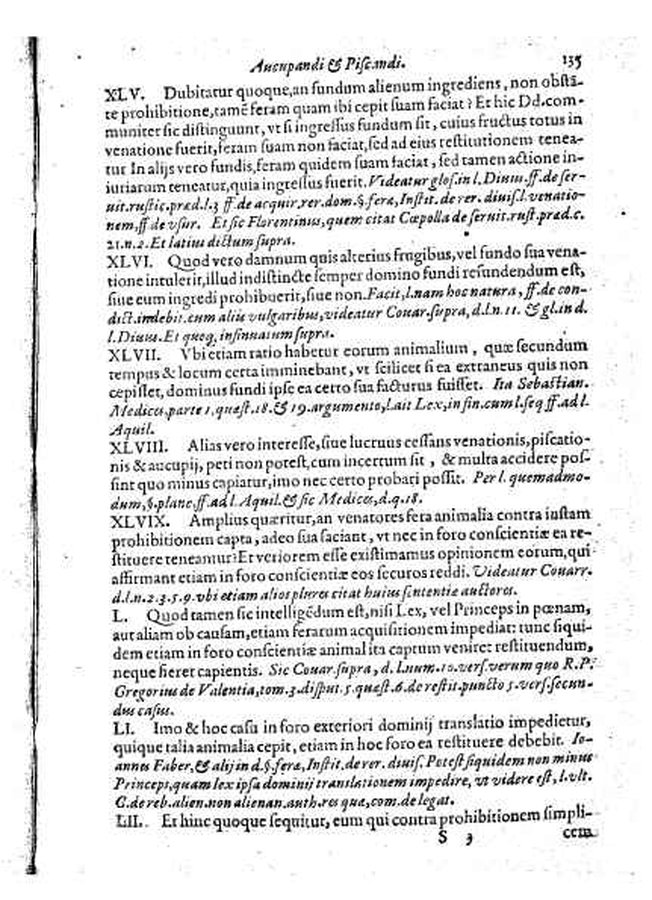 Aucupandi & Piscandi. 135
XLV. Dubitatur quoque, an fundum alienum ingrediens, non obstā-
te prohibitione, tamē feram quam ibi cepit suam faciat? Et hic Dd. com-
muniter sic distinguunt, vt si ingressus fundum sit, cuius fructus totus in
venatione fuerit, feram suam non faciat, sed ad eius restitutionem tenea-
tur. In alijs vero fundis, feram quidem suam faciat, sed tamen actione in-
iuriarum teneatur, quia ingressus fuerit. Videatur glos. in l. Diuus. ff. de ser-
uit. rustic. præd. l. 3 ff. de acquir. rer. dom. §. fera, Instit. de rer. diuis. l. venatio-
nem, ff. de vsur. Et sic Florentinus, quem citat Cæpolla de seruit. rust. præd. c.
21. n. 2. Et latius dictum supra.
XLVI. Quod vero damnum quis alterius frugibus, vel fundo sua vena-
tione intulerit, illud indistincte semper domino fundi resundendum est,
siue eum ingredi prohibuerit, siue non. Facit, l. nam hoc natura, ff. de con-
dict. indebit. cum aliis vulgaribus, videatur Couar. supra, d. l. n. 11. & gl. in d.
l. Diuus. Et quoq, insinuatum supra.
XLVII. Vbi etiam ratio habetur eorum animalium, quæ secundum
tempus & locum certa imminebant, vt scilicet si ea extraneus quis non
cepisset, dominus fundi ipse ea certo sua facturus fuisset. Ita Sebastian.
Medices, parte 1. quæst. 18. & 19. argumento, l. ait Lex, in fin. cum l. seq ff. ad l.
Aquil.
XLVIII. Alias vero interesse, siue lucruus cessans venationis, piscatio-
nis & aucupij, peti non potest, cum incertum sit, & multa accidere pos-
sint quo minus capiatur, imo nec certo probari possit. Per l. quemadmo-
dum, §. plane, ff. ad l. Aquil. & sic Medices, d. q. 18.
XLVIX. Amplius quæritur, an venatores fera animalia contra iustam
prohibitionem capta, adeo sua faciant, vt nec in foro conscientiæ ea re-
stituere teneantur? Et veriorem esse existimamus opinionem eorum, qui
affirmant etiam in foro conscientiæ eos securos reddi. Videatur Couarr.
d. l. n. 2. 3. 5. 9. vbi etiam alios plures citat huius sententiæ auctores.
L. Quod tamen sic intelligēdum est, nisi Lex, vel Princeps in pœnam,
aut aliam ob causam, etiam ferarum acquisitionem impediat: tunc siqui-
dem etiam in foro conscientiæ animal ita captum veniret restituendum,
neque fieret capientis. Sic Couar. supra, d. l. num. 10. vers. verum quo R. P.
Gregorius de Valentia, tom. 3. disput. 5. quæst. 6. de restit. puncto 5. vers. secun-
dus casus.
LI. Imo & hoc casu in foro exteriori dominij translatio impedietur,
quique talia animalia cepit, etiam in hoc foro ea restituere debebit. Io-
annes Faber, & alij in d. §. feræ, Instit. de rer. diuis. Potest siquidem non minus
Princeps, quam lex ipsa dominij translationem impedire, vt videre est, l. vlt.
C. de reb. alien. non alienan. auth. res quæ, com. de legat.
LII. Et hinc quoque sequitur, eum qui contra prohibitionem simpli-
S 3 cem